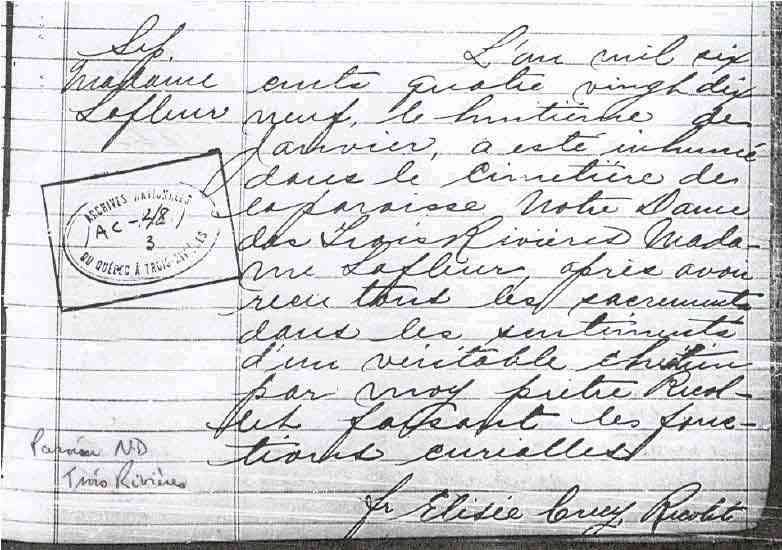 Sep.
Madame
Lafleur
L'an mil six
cents quatre vingt dix
neuf, le huitième de
Janvier, a esté inhumé
dans le cimetière de
la paroisse Notre Dame
des Trois Rivières Mada-
me Lafleur, après avoir
recu tous les sacrements
dans les sentiments
d'un véritable chrétien
par moy prêtre Récol-
let faisant les fonc-
tions curialles.
fr Elisée Crey, Récolet
ARCHIVES NATIONALES
AC-28
3
DU QUÉBEC À TROIS-RIVIÈRES
Paroisse ND
Trois Rivières